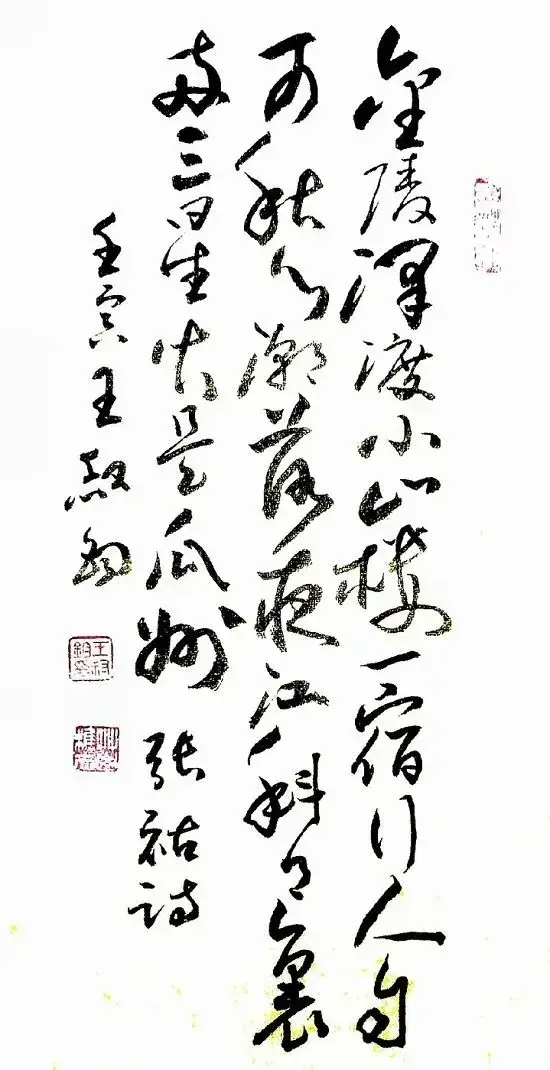 金陵津渡小山樓一宿行人自
可愁潮落夜江斜月裏
两三星火是瓜州 張祜詩
壬寅王